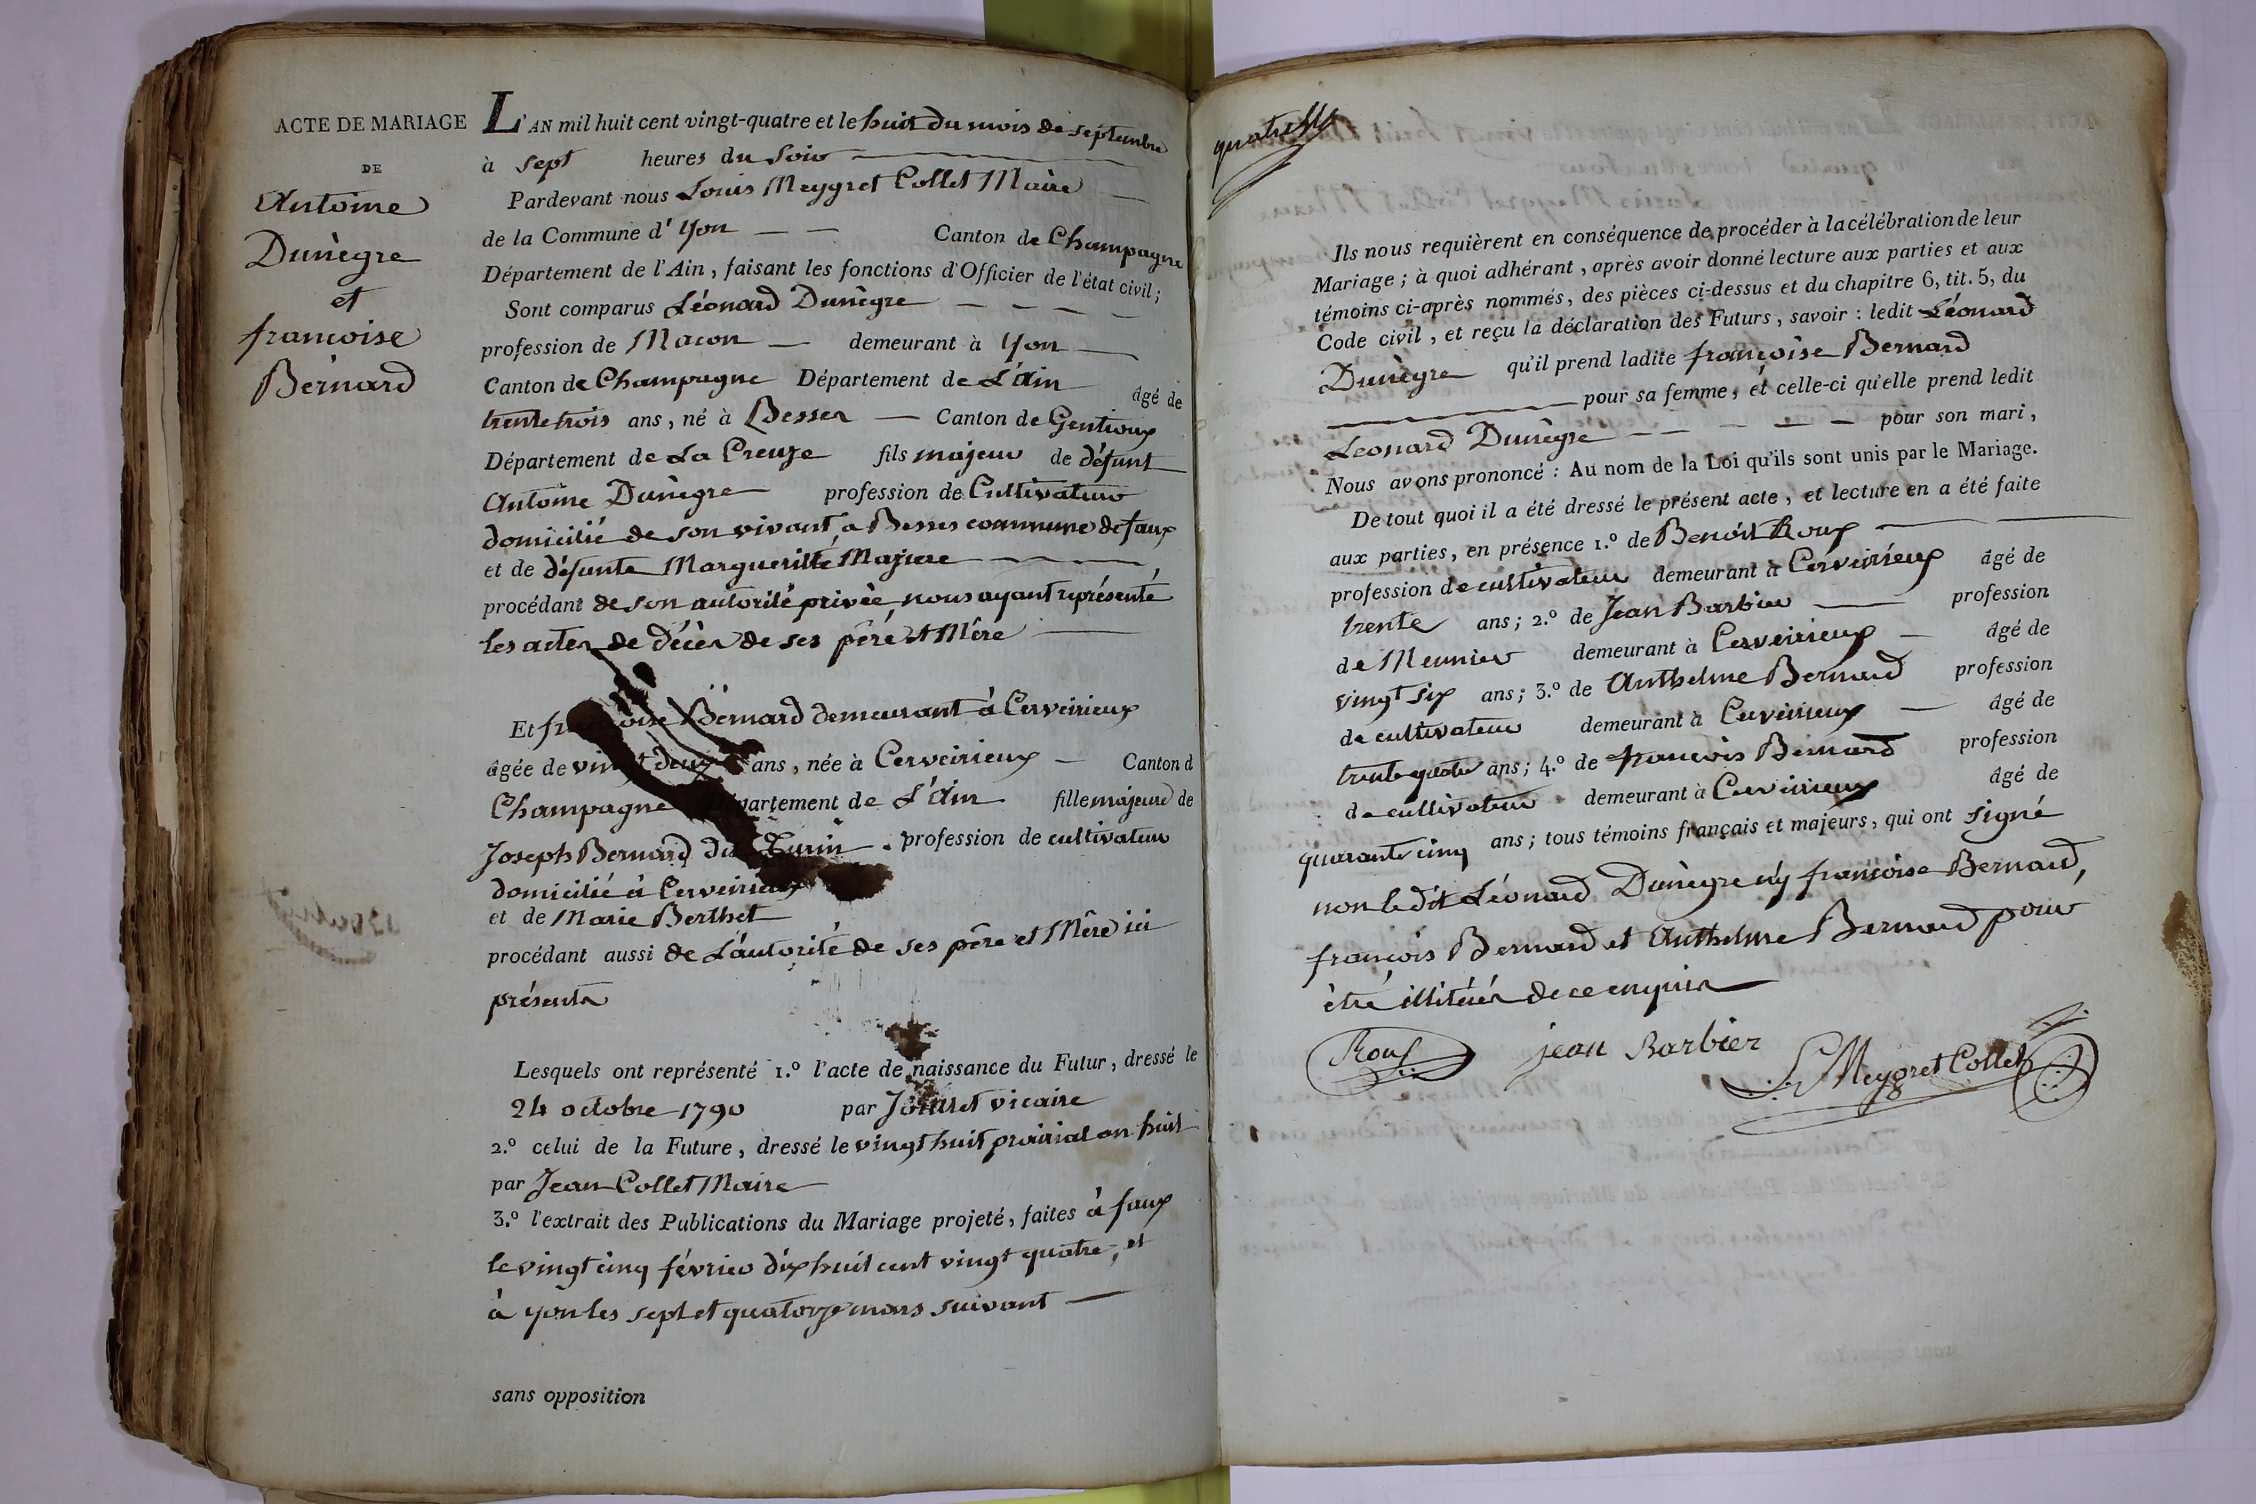 ACTE DE MARIAGE
DE
Antoine
Dunègre
et
françoise
Bernard
L'AN mil huit cent vingt-quatre et le huit du mois de septembre
à sept heures du soir
Pardevant nous Louis Meygret Collet Maire
de la Commune d'Yon Canton de Champagne
Département de l'Ain, faisant les fonctions d'Officier de l'état civil;
Sont comparus Léonard Dunègre
profession de Macon demeurant à Yon
Canton de Champagne Département de L'Ain âgé de
trente trois ans, né à Besser Canton de Gentioux
Département de La Creuze fils majeur de défunt
Antoine Dunègre profession de Cultivateur
domicilié de son vivant à Besses commune de faux
et de défunte Margueritte Majiere
procédant de son autorité privée, nous ayant représenté
les actes de décès de ses père et Mère
Et françoise Bernard demeurant à Cerveirieux
âgée de vingt deux ans, née à Cerveirieux Canton d
Champagne Département de L'Ain fille majeure de
Joseph Bernard dit Turin profession de cultivateur
domicilié à Cerveirieux
et de Marie Berthet
procédant aussi de L'autorité de ses père et Mère ici
présents
Lesquels ont représenté 1.º l'acte de naissance du Futur, dressé le
24 octobre 1790 par vicaire
2.º celui de la Future, dressé le vingt huit prairial an huit
par Jean Collet Maire
3.º l'extrait des Publications du Mariage projeté, faites à faux
le vingt cinq février dix huit cent vingt quatre, et
à yon les sept et quatorze mars suivant
sans opposition
Ils nous requièrent en conséquence de procéder à la célébration de leur
Mariage; à quoi adhérant, après avoir donné lecture aux parties et aux
témoins ci-après nommés, des pièces ci-dessus et du chapitre 6, tit. 5, du
Code civil, et reçu la déclaration des Futurs, savoir : ledit Léonard
Dunègre qu'il prend ladite françoise Bernard
pour sa femme, et celle-ci qu'elle prend ledit
Leonard Dunègre pour son mari,
Nous avons prononcé : Au nom de la Loi qu'ils sont unis par le Mariage.
De tout quoi il a été dressé le présent acte, et lecture en a été faite
aux parties, en présence 1.º de Benoit Roux
profession de cultivateur demeurant à Cerveirieux âgé de
trente ans; 2.º de Jean Barbier profession
de Meunier demeurant à Cerveirieux âgé de
vingt six ans; 3.º de Anthelme Bernard profession
de cultivateur demeurant à Cerveirieux âgé de
trente quatre ans; 4.º de françois Bernard profession
de cultivateur demeurant à Cerveirieux âgé de
quarante cinq ans; tous témoins français et majeurs, qui ont signé
non ledit Léonard Dunègre ny françoise Bernard,
françois Bernard et Anthelme Bernard pour
être illitérés de ce enquis
Roux
jean Barbier
L Meygret Collet